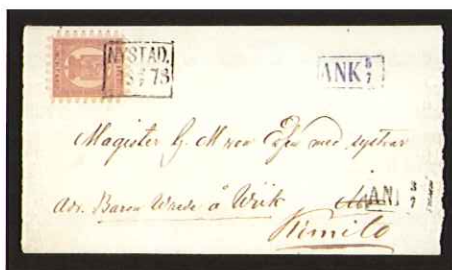 NYSTAD.
ANK 5/7
Magister G. M von Essen med systrar
adr. Baron Wrede å Wiik Åbo
ANK 3/7
Kimito